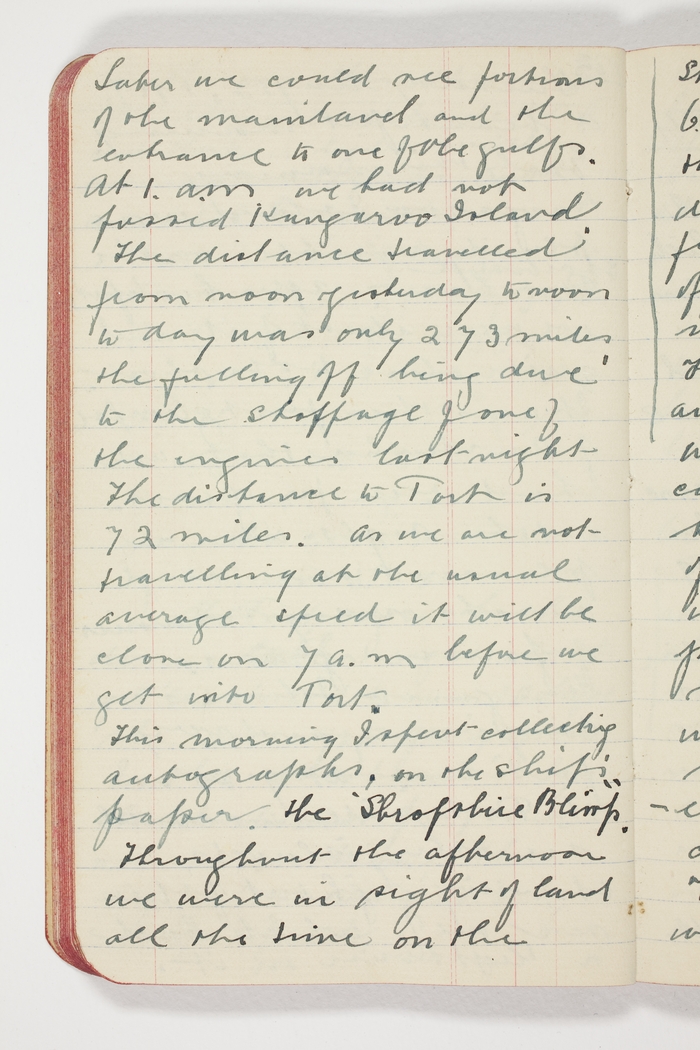 Later we could see portions
of the mainland and the
entrance to one of the gulfs.
At 1. am we had not
passed Kangaroo Island.
The distance travelled
from noon yesterday to noon
to day was only 273 miles
the falling off being due
to the stoppage of one of
the engines last night
The distance to Port is
72 miles. As we are not
travelling at the usual
average speed it will be
close on 7 a.m before we
get into Port.
This morning I spent collecting
autographs, on the ship's
paper. the "Shropshire Blimp".
Throughout the afternoon
we were in sight of land
all the time on the